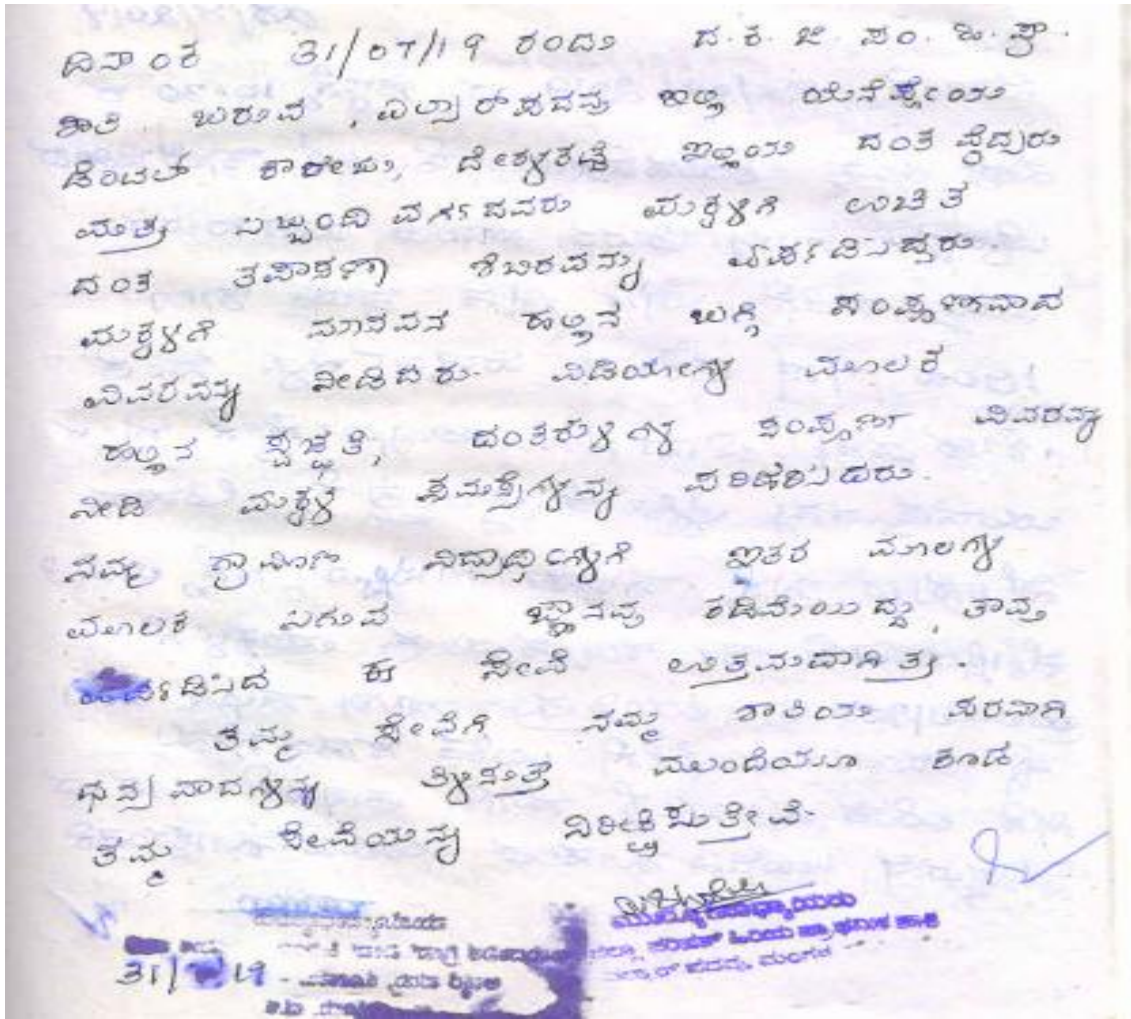 ದಿನಾಂಕ 31/07/19 ರಂದು ದ.ಕ.ಜಿ.ಪಂ.ಹಿ.ಪ್ರಾ.
ಶಾಲೆ ಬರುವ, ಎಲ್ಯಾರ್ ಪದವು ಇಲ್ಲಿ ಯೆನೆಪೋಯ
ಡೆಂಟಲ್ ಕಾಲೇಜು, ದೇರಳಕಟ್ಟೆ ಇಲ್ಲಿಯ ದಂತ ವೈದ್ಯರು
ಮತ್ತು ಸಿಬ್ಬಂದಿ ವರ್ಗದವರು ಮಕ್ಕಳಿಗೆ ಉಚಿತ
ದಂತ ತಪಾಸಣಾ ಶಿಬಿರವನ್ನು ಏರ್ಪಡಿಸಿದ್ದರು.
ಮಕ್ಕಳಿಗೆ ಮಾನವನ ಹಲ್ಲಿನ ಬಗ್ಗೆ ಸಂಪೂರ್ಣವಾದ
ವಿವರವನ್ನು ನೀಡಿದರು. ವಿಡಿಯೋಗಳ ಮೂಲಕ
ಹಲ್ಲಿನ ಸ್ವಚ್ಛತೆ, ದಂತಕ್ಷಯಗಳ ಸಂಪೂರ್ಣ ವಿವರವನ್ನು
ನೀಡಿ ಮಕ್ಕಳ ಸಮಸ್ಯೆಗಳನ್ನು ಪರಿಹರಿಸಿದರು.
ನಮ್ಮ ಗ್ರಾಮೀಣ ವಿದ್ಯಾರ್ಥಿಗಳಿಗೆ ಇತರ ಮೂಲಗಳ
ಮೂಲಕ ಸಿಗುವ ಜ್ಞಾನವು ಕಡಿಮೆಯಿದ್ದು, ತಾವು
ಏರ್ಪಡಿಸಿದ ಈ ಸೇವೆ ಉತ್ತಮವಾಗಿತ್ತು.
ತಮ್ಮ ಸೇವೆಗೆ ನಮ್ಮ ಶಾಲೆಯ ಪರವಾಗಿ
ಧನ್ಯವಾದಗಳನ್ನು ತಿಳಿಸುತ್ತಾ ಮುಂದೆಯೂ ಕೂಡ
ತಮ್ಮ ಸೇವೆಯನ್ನು ನಿರೀಕ್ಷಿಸುತ್ತೇವೆ.
ಮುಖ್ಯೋಪಾಧ್ಯಾಯರು
ಜಿಲ್ಲಾ ಪರಿಷತ್ ಹಿರಿಯ ಪ್ರಾಥಮಿಕ ಶಾಲೆ
ಪದವು, ಮಂಗಳ
31/ 19